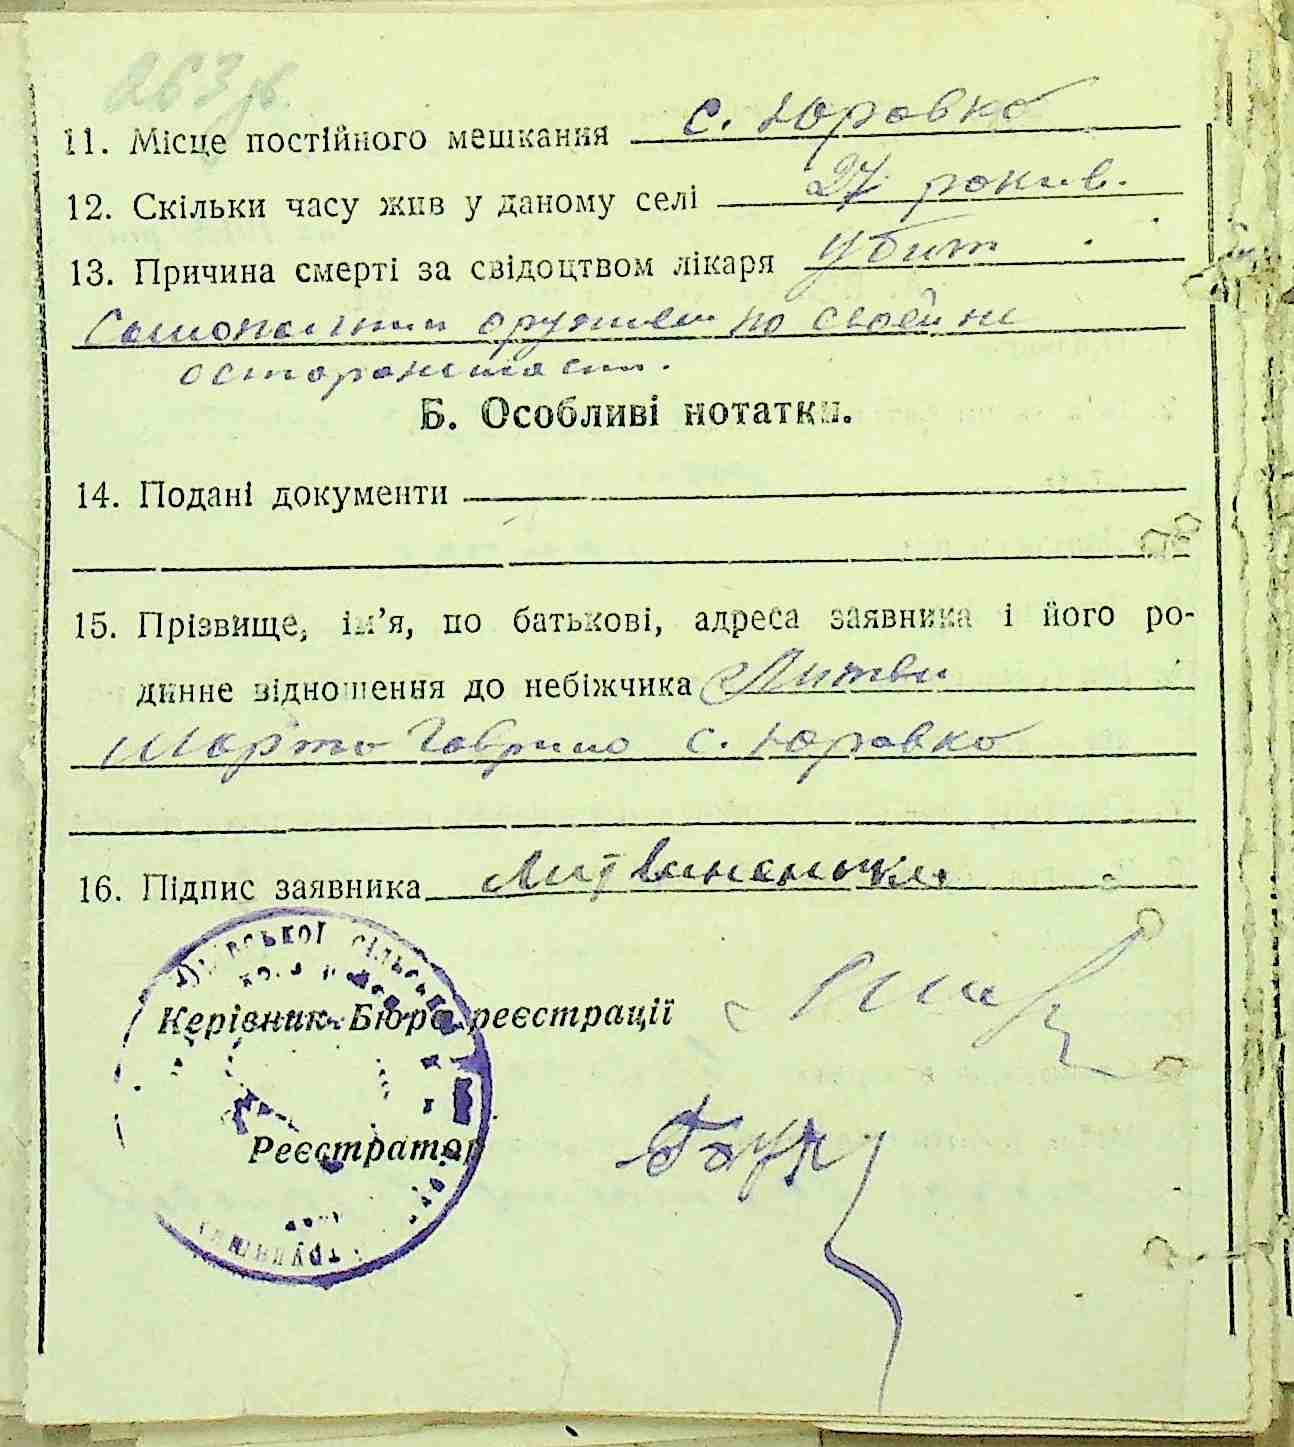 263 зв.
11. Місце постійного мешкання с. Юровка
12. Скільки часу жив у даному селі 27 рокив.
13. Причина смерті за свідоцтвом лікаря убит
самопальним оружием по своей не
осторожности.
Б. Особливі нотатки.
14. Подані документи
15. Прізвище, ім’я, по батькові, адреса заявника і його ро-
динне відношення до небіжчика Литви
Марта Гаврило с. Юровка
16. Підпис заявника
Керівник Бюро реєстрації
Реєстратор